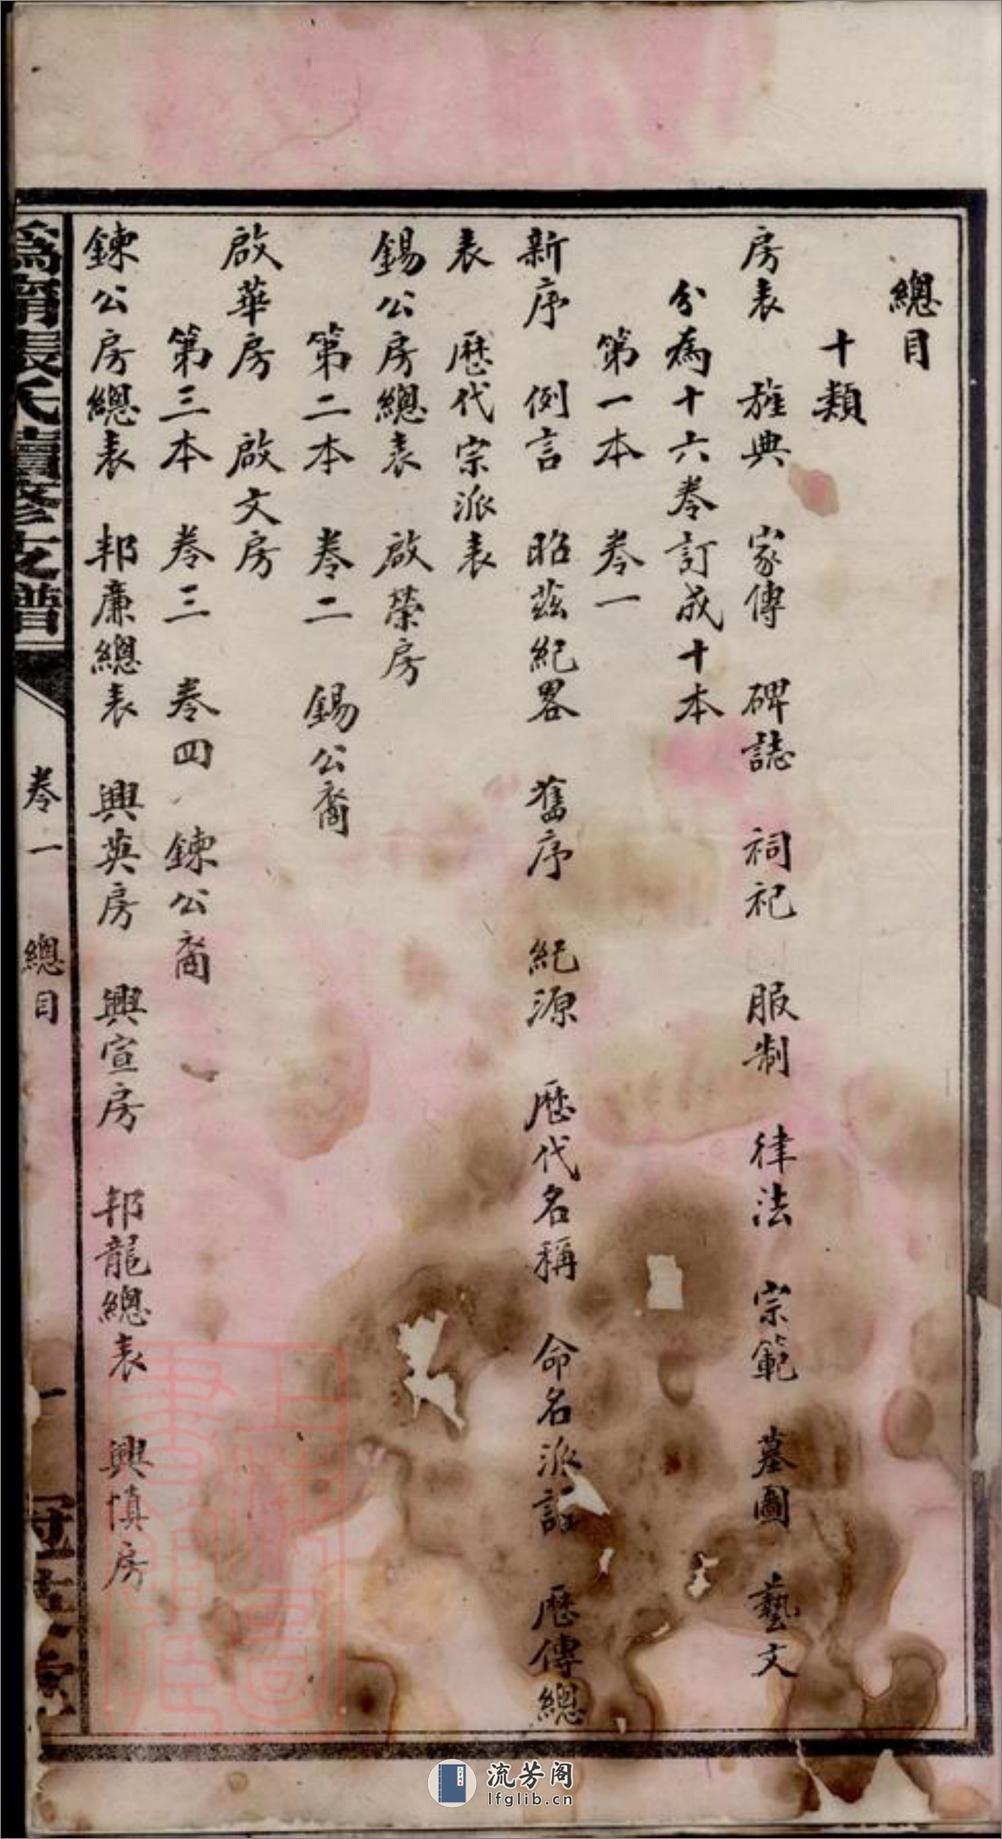 總目
十類
房表　旌典　家傳　碑誌　祠祀　服制　律法　宗範　墓圖　藝文
分為十六卷訂成十本
第一本　卷一
新序　例言　昭茲紀畧　舊序　紀源　歷代名稱　命名派註　歷傳總
表　歷代宗派表
錫公房總表　啟榮房
第二本　卷二　錫公裔
啟華房　啟文房
第三本　卷三　卷四　鍊公裔
鍊公房總表　邦廉總表　興英房　興宣房　邦龍總表　興慎房
張氏續修支譜　卷一　總目　一
流芳阁
lfglib.cn